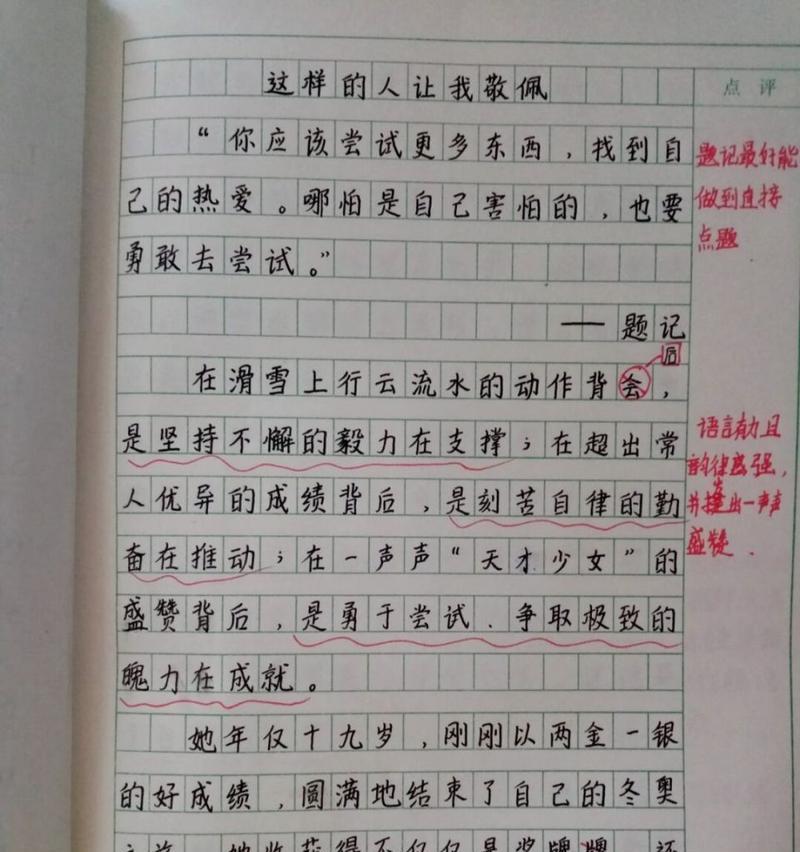 这样的人让我敬佩
点评
“你应该尝试更多东西，找到自
己的热爱。哪怕是自己害怕的，也要
勇敢去尝试。”
题记最好能
做到直接
点题
——题记
后
在滑雪上行云流水的动作背会，
是坚持不懈的毅力在支撑；在超出常
人优异的成绩背后，是刻苦自律的勤
奋在推动；在一声声“天才少女”的
盛赞背后，是勇于尝试、争取极致的
魄力在成就。
语言有力且
韵律感强，
并提出一声声
盛赞.
她年仅十九岁，刚刚以两金一银
的好成绩，圆满地结束了自己的冬奥
之旅 她收获得不仅仅是奖牌 还